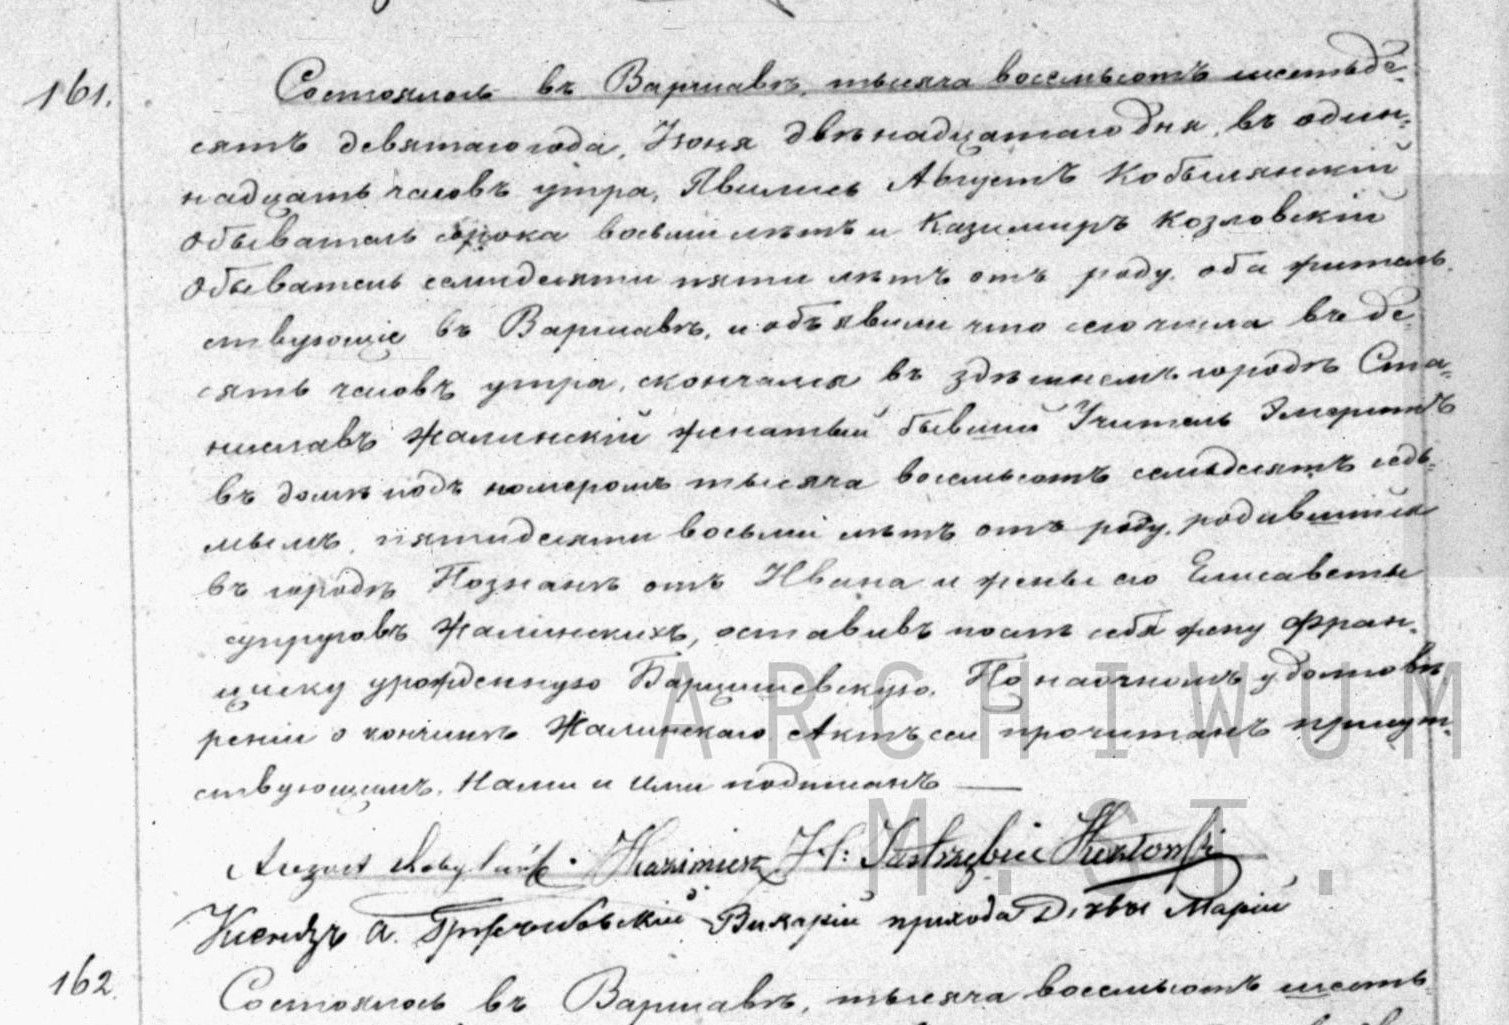 161.
Состоялось въ Варшавѣ, тысяча восемьсотъ шестьде-
сятъ девятаго года, Іюня двѣнадцатаго дня, въ один-
надцать часовъ утра, Явились Августъ Кобылянскій
Обыватель сорока восьми лѣтъ и Казимиръ Козловскій
Обыватель семидесяти пяти лѣтъ отъ роду, оба житель-
ствующіе въ Варшавѣ, и объявили что сего числа въ де-
сять часовъ утра, скончался въ здѣшнемъ городѣ Ста-
ниславъ Жалинскій женатый бывшій Учитель Эмеритъ
въ домѣ подъ номеромъ тысяча восемьсотъ семьдесятъ седь-
мымъ, пятидесяти восьми лѣтъ отъ роду, родившійся
въ городѣ Познанѣ отъ Ивана и жены его Елисаветы
супруговъ Жалинскихъ, оставивъ послѣ себя жену Фран-
циску урожденную Барцишевскую. По наочномъ удостовѣ-
реніи о кончинѣ Жалинскаго, Актъ сей прочитанъ присут-
ствующимъ, Нами и Ими подписанъ —
August Kobylański. Kazimierz Kozłowski
Ксендзъ А. Викарій прихода Дѣвы Маріи
162.
Состоялось въ Варшавѣ, тысяча восемьсотъ шесть-
ARCHIWUM
M. ST.